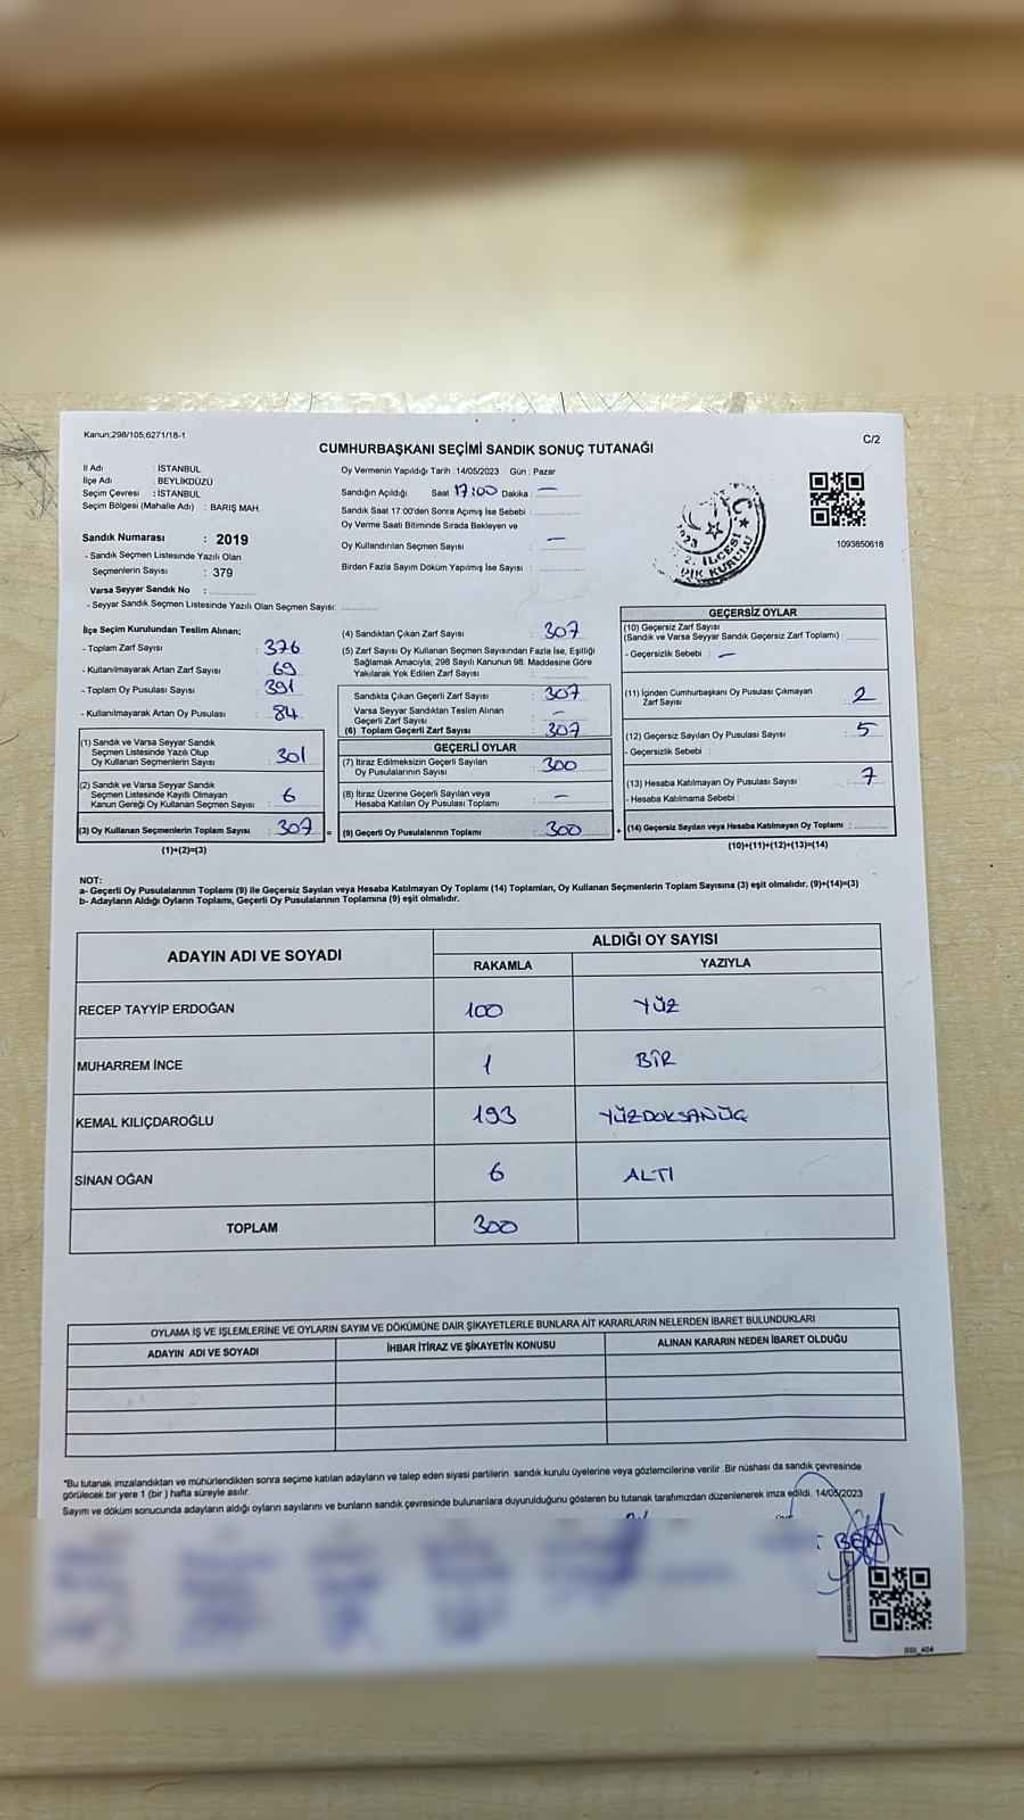 Kanun;298/105;6271/18-1
C/2
CUMHURBAŞKANI SEÇİMİ SANDIK SONUÇ TUTANAĞI
İl Adı : İSTANBUL
İlçe Adı : BEYLİKDÜZÜ
Seçim Çevresi : İSTANBUL
Seçim Bölgesi (Mahalle Adı) : BARIŞ MAH.
Sandık Numarası : 2019
- Sandık Seçmen Listesinde Yazılı Olan
Seçmenlerin Sayısı : 379
Varsa Seyyar Sandık No :
- Seyyar Sandık Seçmen Listesinde Yazılı Olan Seçmen Sayısı:
Oy Vermenin Yapıldığı Tarih :14/05/2023 Gün : Pazar
Sandığın Açıldığı Saat 17:00 Dakika : —
Sandık Saat 17:00'den Sonra Açılmış İse Sebebi :
Oy Verme Saati Bitiminde Sırada Bekleyen ve
Oy Kullandırılan Seçmen Sayısı : —
Birden Fazla Sayım Döküm Yapılmış İse Sayısı :
2. İLÇESİ
KURULU
1093850618
İlçe Seçim Kurulundan Teslim Alınan;
- Toplam Zarf Sayısı : 376
- Kullanılmayarak Artan Zarf Sayısı : 69
- Toplam Oy Pusulası Sayısı : 391
- Kullanılmayarak Artan Oy Pusulası : 84
(1) Sandık ve Varsa Seyyar Sandık
Seçmen Listesinde Yazılı Olup
Oy Kullanan Seçmenlerin Sayısı : 301
(2) Sandık ve Varsa Seyyar Sandık
Seçmen Listesinde Kayıtlı Olmayan
Kanun Gereği Oy Kullanan Seçmen Sayısı : 6
(3) Oy Kullanan Seçmenlerin Toplam Sayısı : 307 =
(1)+(2)=(3)
(4) Sandıktan Çıkan Zarf Sayısı : 307
(5) Zarf Sayısı Oy Kullanan Seçmen Sayısından Fazla İse, Eşitliği
Sağlamak Amacıyla, 298 Sayılı Kanunun 98. Maddesine Göre
Yakılarak Yok Edilen Zarf Sayısı :
Sandıkta Çıkan Geçerli Zarf Sayısı : 307
Varsa Seyyar Sandıktan Teslim Alınan
Geçerli Zarf Sayısı : —
(6) Toplam Geçerli Zarf Sayısı : 307
GEÇERLİ OYLAR
(7) İtiraz Edilmeksizin Geçerli Sayılan
Oy Pusulalarının Sayısı : 300
(8) İtiraz Üzerine Geçerli Sayılan veya
Hesaba Katılan Oy Pusulası Toplamı : —
(9) Geçerli Oy Pusulalarının Toplamı : 300 +
GEÇERSİZ OYLAR
(10) Geçersiz Zarf Sayısı
(Sandık ve Varsa Seyyar Sandık Geçersiz Zarf Toplamı) :
- Geçersizlik Sebebi : —
(11) İçinden Cumhurbaşkanı Oy Pusulası Çıkmayan
Zarf Sayısı : 2
(12) Geçersiz Sayılan Oy Pusulası Sayısı : 5
- Geçersizlik Sebebi :
(13) Hesaba Katılmayan Oy Pusulası Sayısı : 7
- Hesaba Katılmama Sebebi :
(14) Geçersiz Sayılan veya Hesaba Katılmayan Oy Toplamı :
(10)+(11)+(12)+(13)=(14)
NOT:
a- Geçerli Oy Pusulalarının Toplamı (9) ile Geçersiz Sayılan veya Hesaba Katılmayan Oy Toplamı (14) Toplamları, Oy Kullanan Seçmenlerin Toplam Sayısına (3) eşit olmalıdır. (9)+(14)=(3)
b- Adayların Aldığı Oyların Toplamı, Geçerli Oy Pusulalarının Toplamına (9) eşit olmalıdır.
ADAYIN ADI VE SOYADI
ALDIĞI OY SAYISI
RAKAMLA YAZIYLA
RECEP TAYYİP ERDOĞAN 100 YÜZ
MUHARREM İNCE 1 BİR
KEMAL KILIÇDAROĞLU 193 YÜZDOKSANÜÇ
SİNAN OĞAN 6 ALTI
TOPLAM 300
OYLAMA İŞ VE İŞLEMLERİNE VE OYLARIN SAYIM VE DÖKÜMÜNE DAİR ŞİKAYETLERLE BUNLARA AİT KARARLARIN NELERDEN İBARET BULUNDUKLARI
ADAYIN ADI VE SOYADI İHBAR İTİRAZ VE ŞİKAYETİN KONUSU ALINAN KARARIN NEDEN İBARET OLDUĞU
*Bu tutanak imzalandıktan ve mühürlendikten sonra seçime katılan adayların ve talep eden siyasi partilerin sandık kurulu üyelerine veya gözlemcilerine verilir. Bir nüshası da sandık çevresinde
görülecek bir yere 1 (bir) hafta süreyle asılır.
Sayım ve döküm sonucunda adayların aldığı oyların sayılarını ve bunların sandık çevresinde bulunanlara duyurulduğunu gösteren bu tutanak tarafımızdan düzenlenerek imza edildi. 14/05/2023